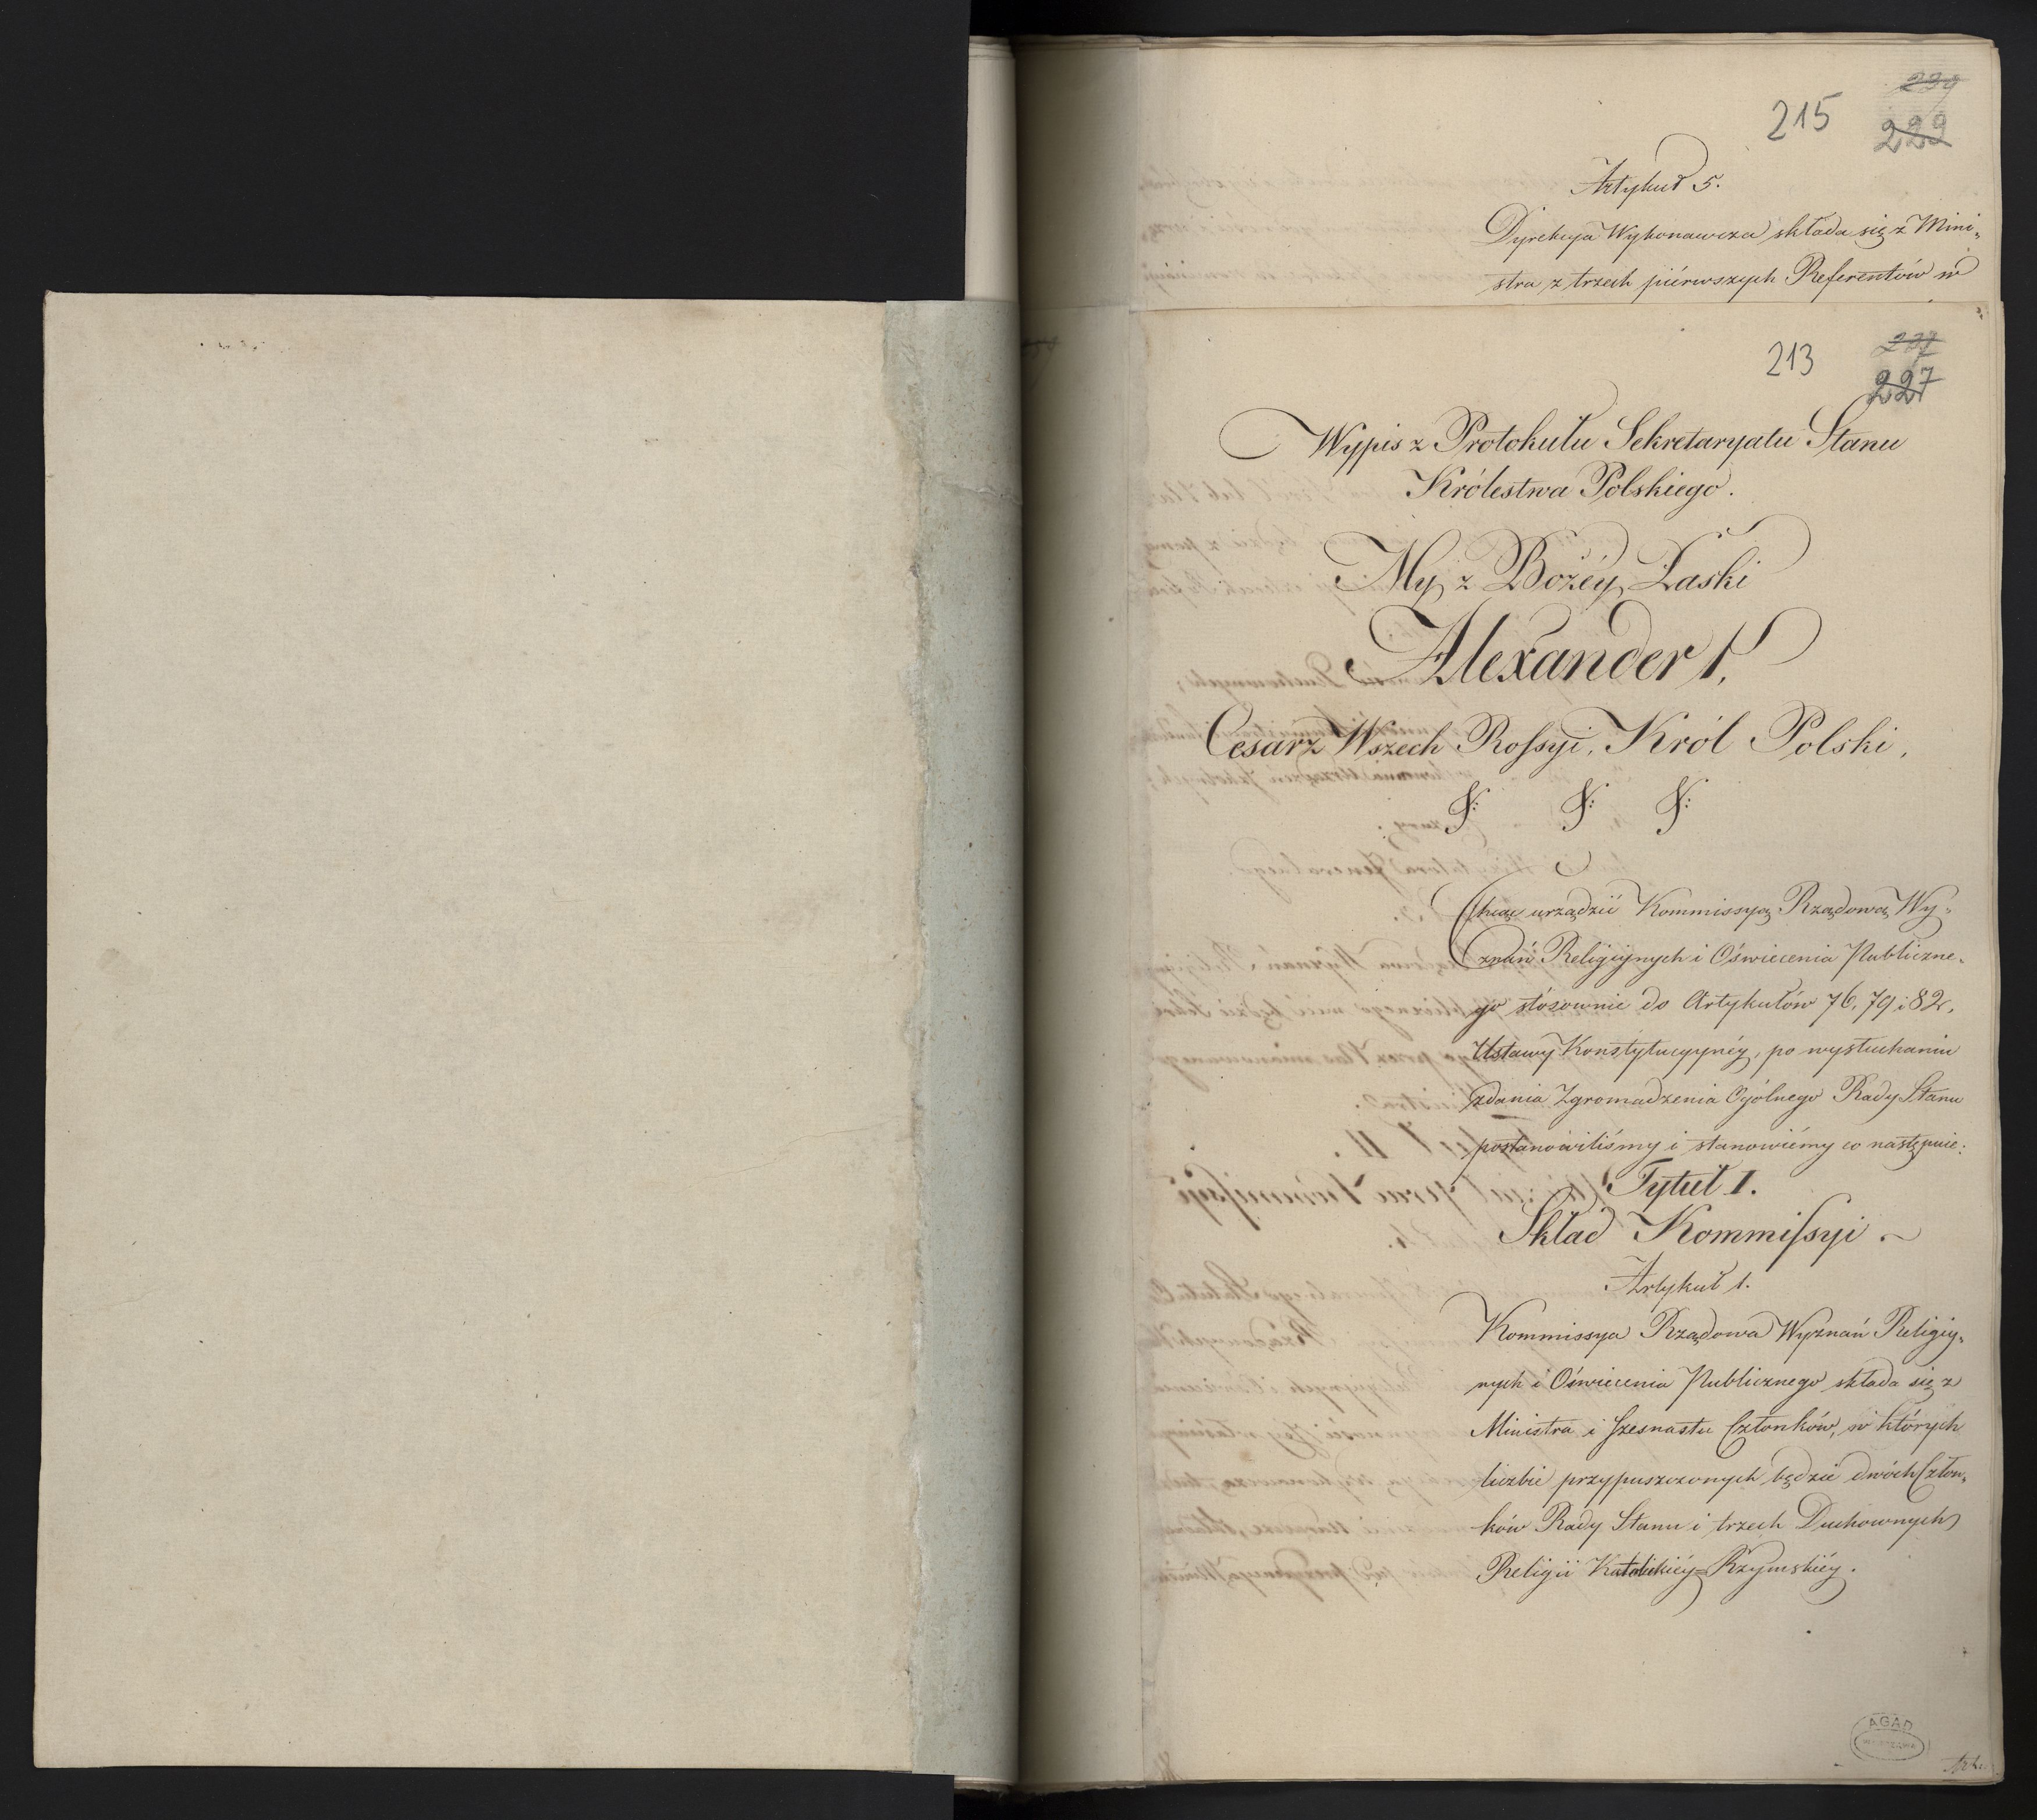 239
215
229
Artykuł 5.
Dyrekcya Wykonawcza składa się z Mini„
stra z trzech piérwszych Referentów w
237
213
227
Wypis z Protokułu Sekretaryatu Stanu
Królestwa Polskiego.
My z Bożéy Łaski
Alexander I,
Cesarz Wszech Rossyi, Król Polski,
&: &: &:
Chcąc urządzić Kommissyą Rządową Wy„
znań Religiynych i Oświecenia Publiczne„
go stósownie do Artykułów 76, 79 i 82,
Ustawy Konstytucyynéy, po wysłuchaniu
zdania Zgromadzenia Ogólnego Rady Stanu
postanowiliśmy i stanowiémy co następuie:
Tytuł I.
Skład Kommissyi.
Artykuł 1.
Kommissya Rządowa Wyznań Religiy„
nych i Oświecenia Publicznego składa się z
Ministra i Szesnastu Członków, w których
liczbie przypuszczonych będzie dwóch Człon„
ków Rady Stanu i trzech Duchownych
Religii Katolickiéy=Rzymskiéy.
AGAD
WARSZAWA